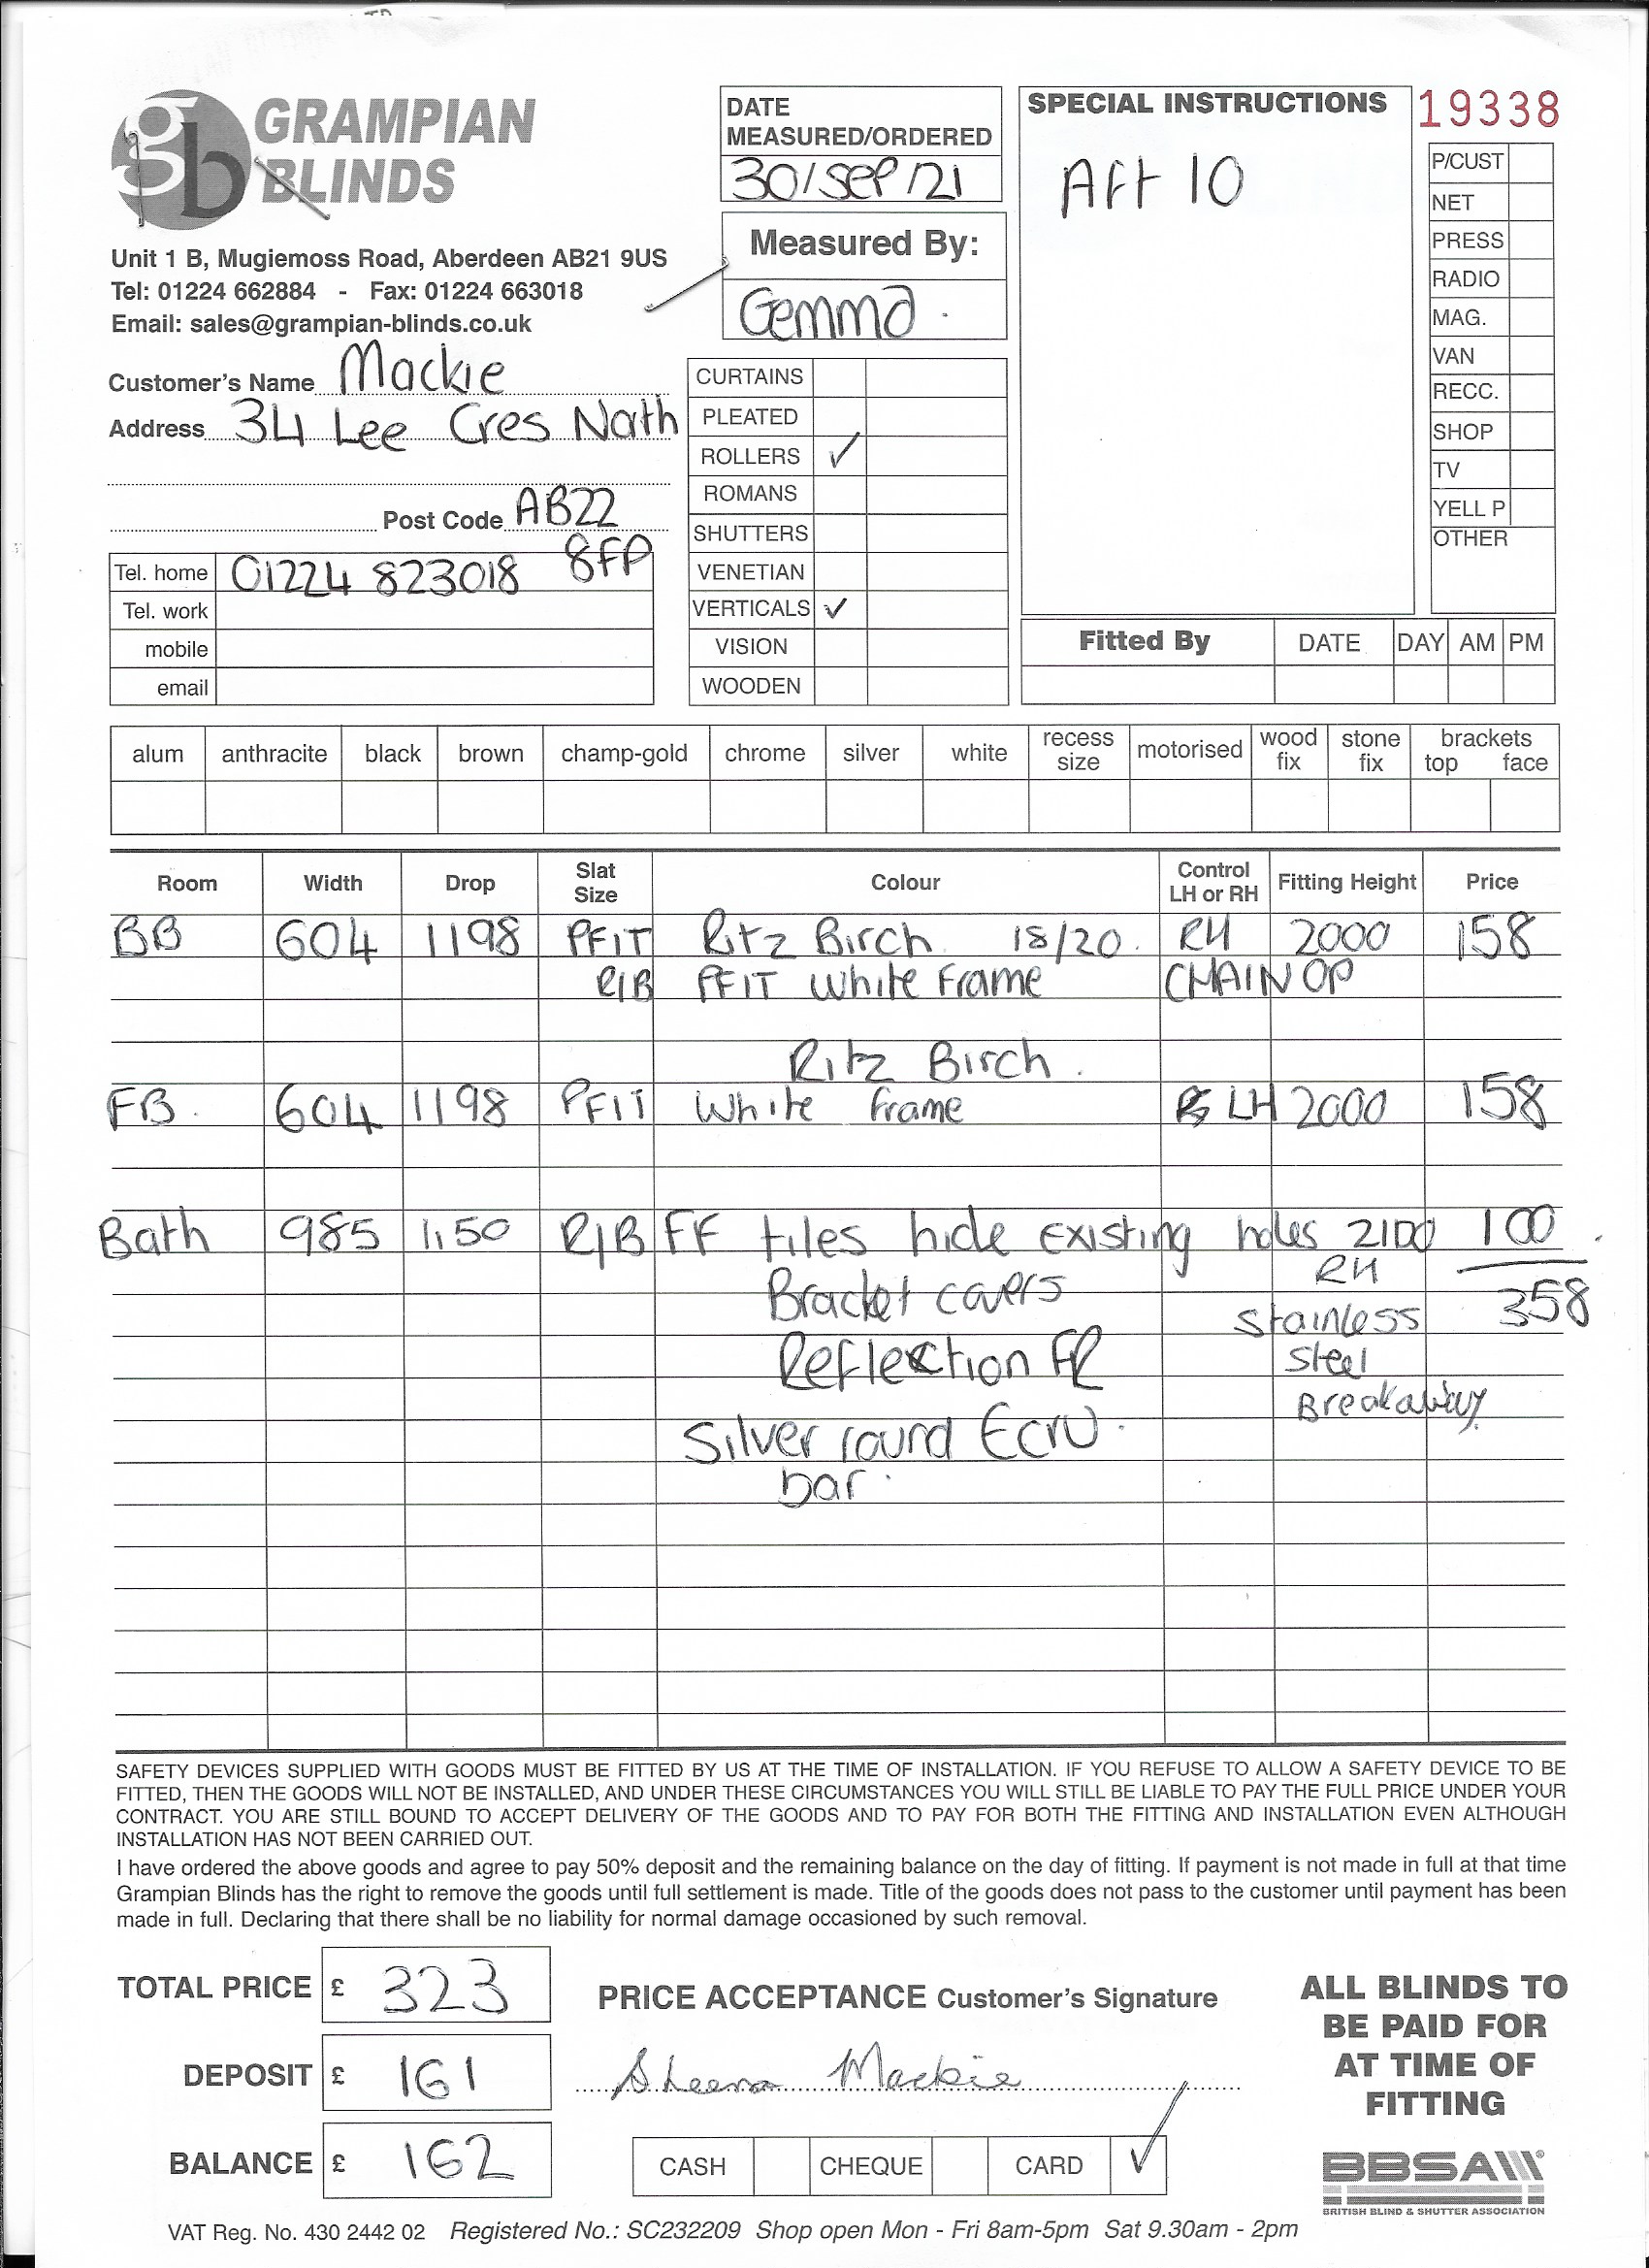 GRAMPIAN
BLINDS
Unit 1 B, Mugiemoss Road, Aberdeen AB21 9US
Tel: 01224 662884 - Fax: 01224 663018
Email: sales@grampian-blinds.co.uk
Customer's Name Mackie
Address 34 Lee Cres North
Post Code AB22
8FP
Tel. home 01224 823018
Tel. work
mobile
email
DATE
MEASURED/ORDERED
30/Sep/21
Measured By:
Gemma.
CURTAINS
PLEATED
ROLLERS ✓
ROMANS
SHUTTERS
VENETIAN
VERTICALS ✓
VISION
WOODEN
SPECIAL INSTRUCTIONS
Aft 10
19338
P/CUST
NET
PRESS
RADIO
MAG.
VAN
RECC.
SHOP
TV
YELL P
OTHER
Fitted By DATE DAY AM PM
alum anthracite black brown champ-gold chrome silver white recess size motorised wood fix stone fix brackets top face
Room Width Drop Slat Size Colour Control LH or RH Fitting Height Price
BB 604 1198 PFIT Ritz Birch 18/20. RH 2000 158
R/B PFIT White Frame CHAIN OP
Ritz Birch.
FB. 604 1198 PFIT White frame LH 2000 158
Bath 985 1150 R/B FF tiles hide existing holes 2100 100
Bracket covers RH 358
Reflection FR Stainless
Steel
Silver round Ecru. Breakaway
bar.
SAFETY DEVICES SUPPLIED WITH GOODS MUST BE FITTED BY US AT THE TIME OF INSTALLATION. IF YOU REFUSE TO ALLOW A SAFETY DEVICE TO BE
FITTED, THEN THE GOODS WILL NOT BE INSTALLED, AND UNDER THESE CIRCUMSTANCES YOU WILL STILL BE LIABLE TO PAY THE FULL PRICE UNDER YOUR
CONTRACT. YOU ARE STILL BOUND TO ACCEPT DELIVERY OF THE GOODS AND TO PAY FOR BOTH THE FITTING AND INSTALLATION EVEN ALTHOUGH
INSTALLATION HAS NOT BEEN CARRIED OUT.
I have ordered the above goods and agree to pay 50% deposit and the remaining balance on the day of fitting. If payment is not made in full at that time
Grampian Blinds has the right to remove the goods until full settlement is made. Title of the goods does not pass to the customer until payment has been
made in full. Declaring that there shall be no liability for normal damage occasioned by such removal.
TOTAL PRICE £ 323
DEPOSIT £ 161
BALANCE £ 162
PRICE ACCEPTANCE Customer's Signature
Sheena Mackie
CASH CHEQUE CARD ✓
ALL BLINDS TO
BE PAID FOR
AT TIME OF
FITTING
BBSA
BRITISH BLIND & SHUTTER ASSOCIATION
VAT Reg. No. 430 2442 02 Registered No.: SC232209 Shop open Mon - Fri 8am-5pm Sat 9.30am - 2pm